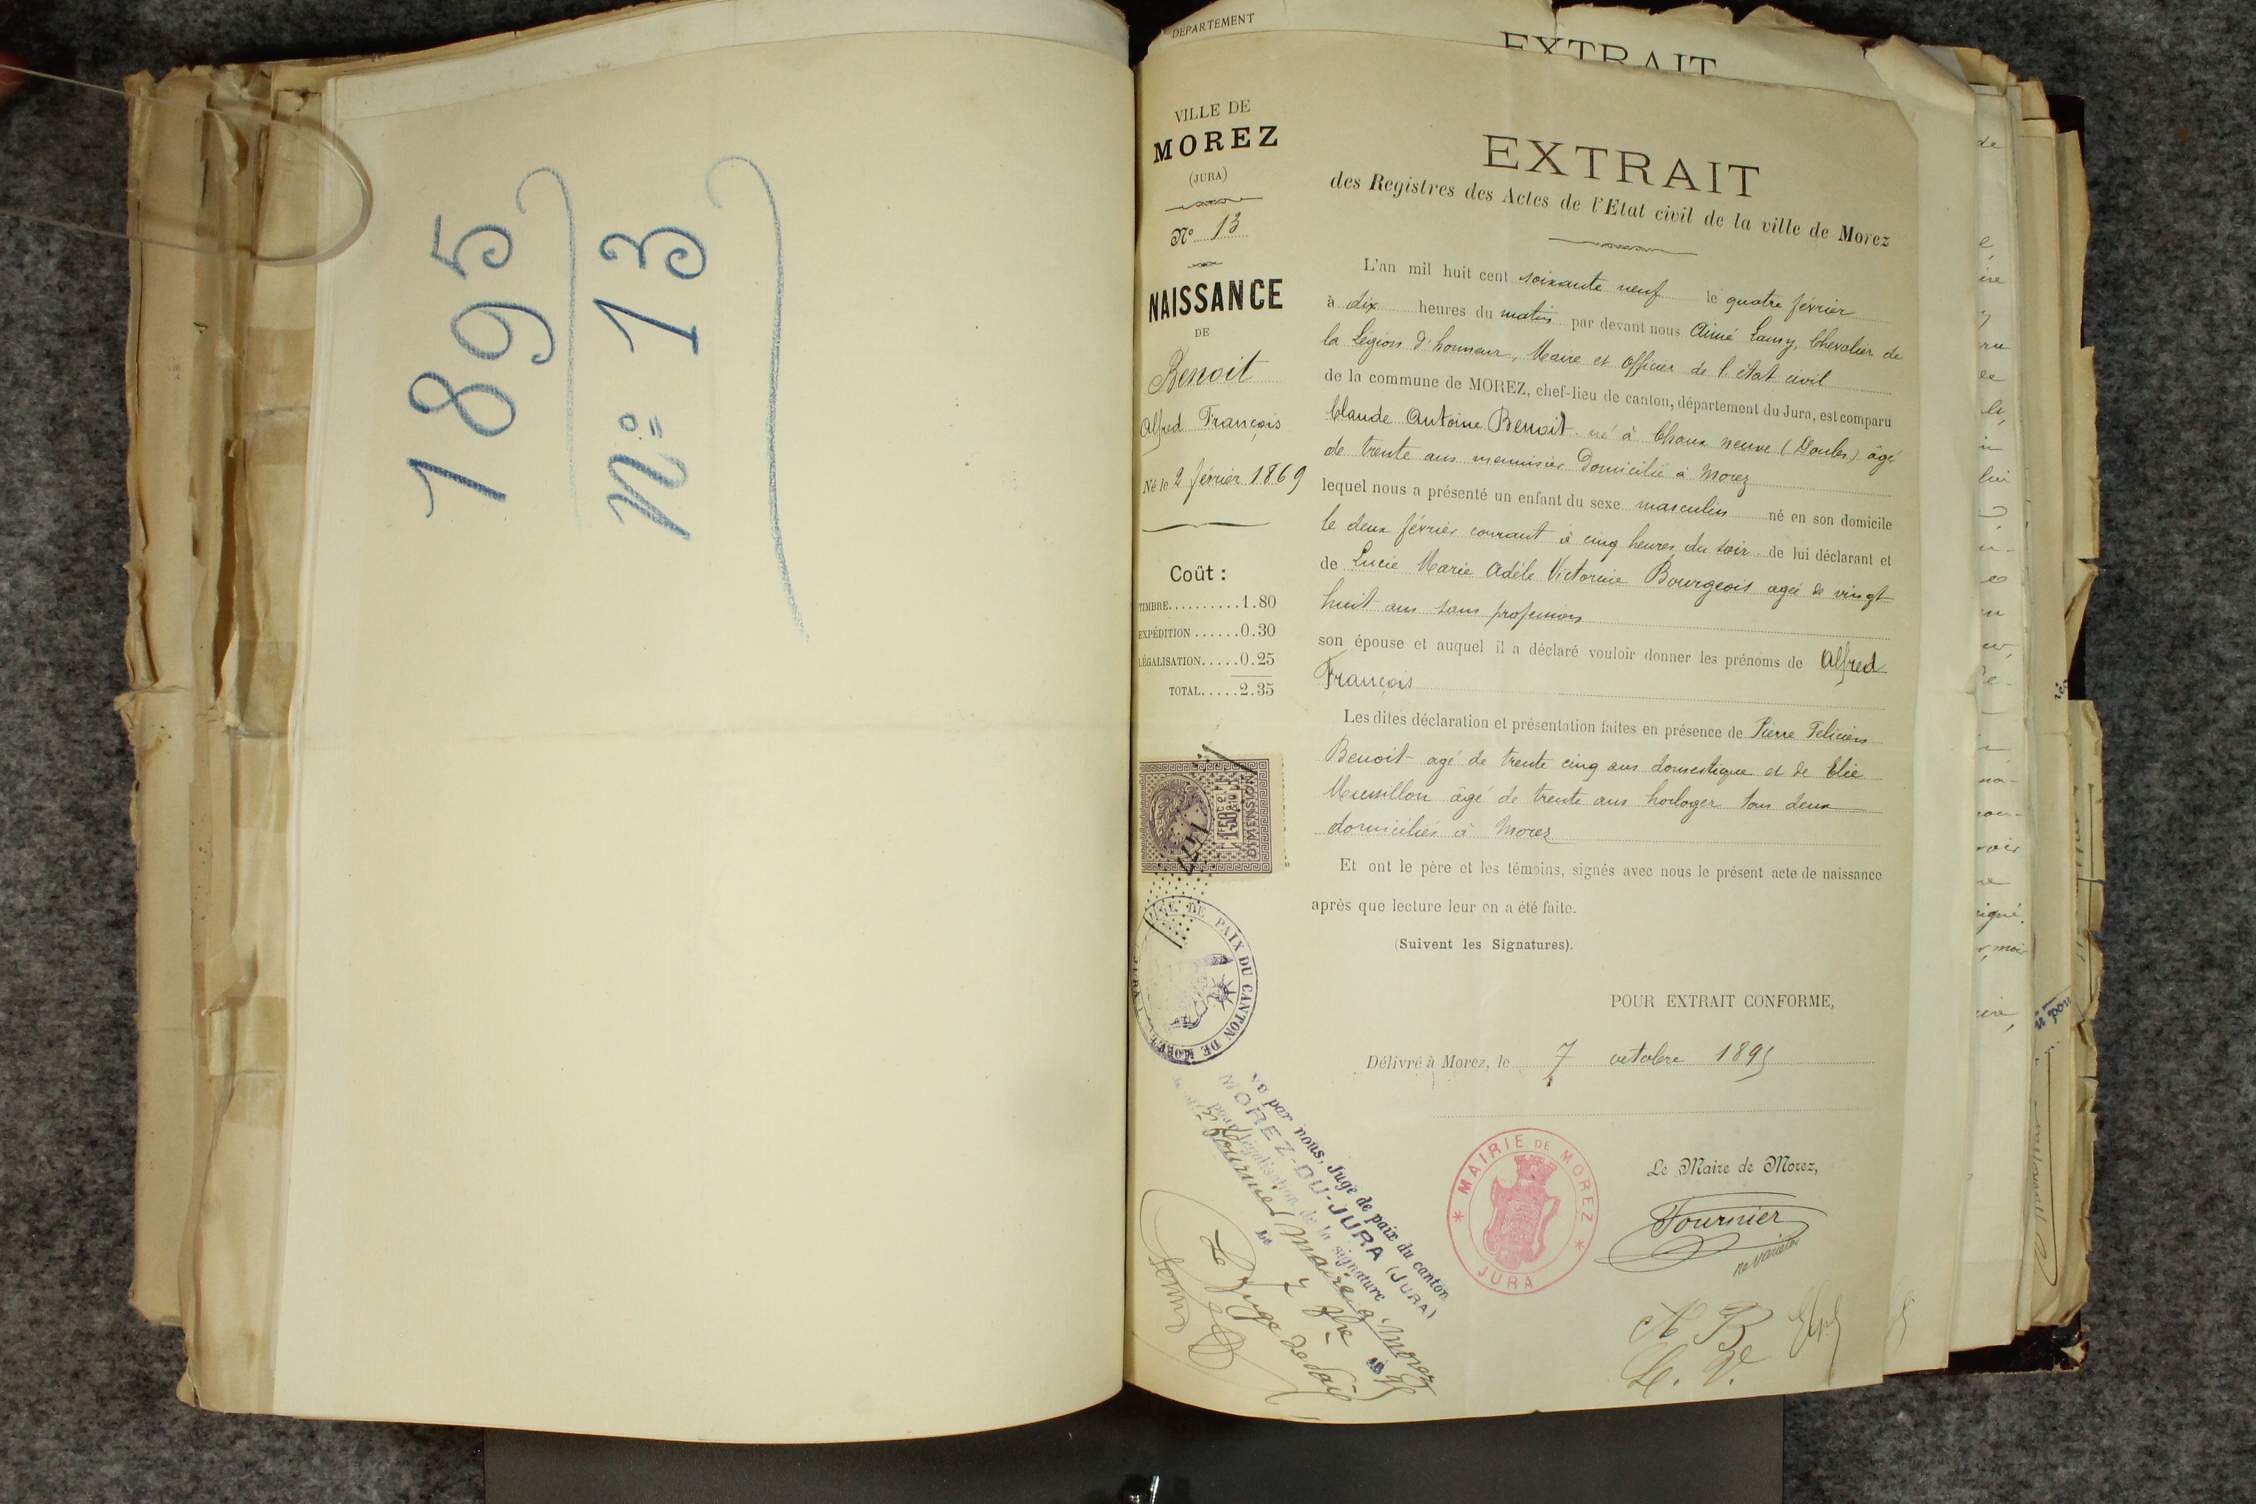 1895
n.º 13
DÉPARTEMENT
EXTRAIT
VILLE DE
MOREZ
(JURA)
Nº 13
NAISSANCE
DE
Benoit
Alfred François
Né le 2 février 1869
Coût :
TIMBRE..........1.80
EXPÉDITION......0.30
LÉGALISATION.....0.25
TOTAL.....2.35
EXTRAIT
des Registres des Actes de l'Etat civil de la ville de Morez
L'an mil huit cent soixante neuf le quatre février
à dix heures du matin par devant nous Aimé Lamy, Chevalier de
la Légion d'honneur, Maire et Officier de l'état civil
de la commune de MOREZ, chef-lieu de canton, département du Jura, est comparu
Claude Antoine Benoit né à Chaux neuve (Doubs) âgé
de trente ans menuisier domicilié à Morez
lequel nous a présenté un enfant du sexe masculin né en son domicile
le deux février courant à cinq heures du soir de lui déclarant et
de Lucie Marie Adèle Victorine Bourgeois agée de vingt
huit ans sans profession
son épouse et auquel il a déclaré vouloir donner les prénoms de Alfred
François
Les dites déclaration et présentation faites en présence de Pierre Felicien
Benoit agé de trente cinq ans domestique et de Elie
âgé de trente ans horloger tous deux
domiciliés à Morez
Et ont le père et les témoins, signés avec nous le présent acte de naissance
après que lecture leur en a été faite.
(Suivent les Signatures).
POUR EXTRAIT CONFORME,
Délivré à Morez, le 7 octobre 1895
Le Maire de Morez,
Fournier
ne varietur
A. B.
MAIRIE DE MOREZ
JURA
DIMENSION
DE PAIX DU CANTON DE MOREZ
Vu par nous, Juge de paix du canton
MOREZ-DU-JURA (JURA)
pour légalisation de la signature
Fournier Maire à Morez
Le 7 8bre 1895
Le Juge de Paix